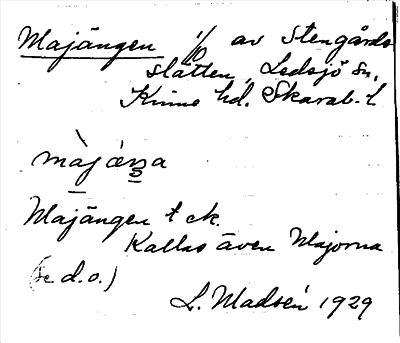 Majängen 1/0 av Stengårds
slätten, Ledsjö sn,
Kinne hd. Skarab. l.
màjäŋa
Majängen t ck.
Kallas även Majorna
(se d.o.)
L. Madsén 1929